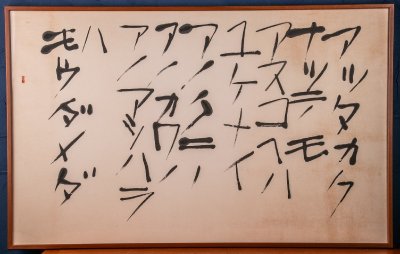 アツタカク
ナツテモ
アスコヘハ
ユケナイ
アノ
アノカワ
アノマツハラ
ハ
モウダメダ